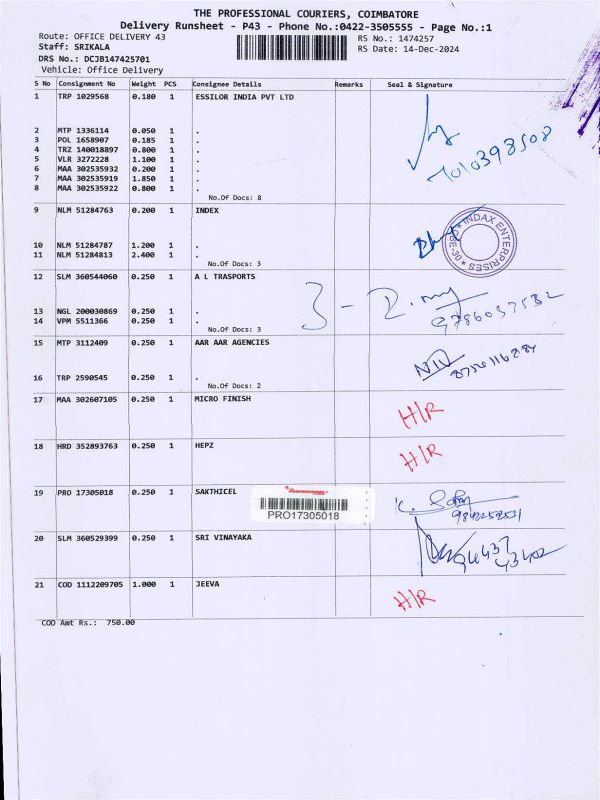 THE PROFESSIONAL COURIERS, COIMBATORE
Delivery Runsheet - P43 - Phone No.:0422-3505555 - Page No.:1
Route: OFFICE DELIVERY 43 RS No.: 1474257
Staff: SRIKALA RS Date: 14-Dec-2024
DRS No.: DCJB147425701
Vehicle: Office Delivery
S No Consignment No Weight PCS Consignee Details Remarks Seal & Signature
1 TRP 1029568 0.180 1 ESSILOR INDIA PVT LTD
2 MTP 1336114 0.050 1 .
3 POL 1658907 0.185 1 .
4 TRZ 140018897 0.800 1 .
5 VLR 3272228 1.100 1 .
6 MAA 302535932 0.200 1 .
7 MAA 302535919 1.850 1 .
8 MAA 302535922 0.800 1 .
No.Of Docs: 8
9 NLM 51284763 0.200 1 INDEX
INDAX ENTERPRISES
10 NLM 51284787 1.200 1 .
11 NLM 51284813 2.400 1 .
No.Of Docs: 3
12 SLM 360544060 0.250 1 A L TRASPORTS
3 -
13 NGL 200030869 0.250 1 .
14 VPM 5511366 0.250 1 .
No.Of Docs: 3
15 MTP 3112409 0.250 1 AAR AAR AGENCIES
16 TRP 2590545 0.250 1 .
No.Of Docs: 2
17 MAA 302607105 0.250 1 MICRO FINISH
H/R
18 HRD 352893763 0.250 1 HEPZ
H/R
19 PRO 17305018 0.250 1 SAKTHICEL
PRO17305018
20 SLM 360529399 0.250 1 SRI VINAYAKA
21 COD 1112209705 1.000 1 JEEVA
H/R
COD Amt Rs.: 750.00